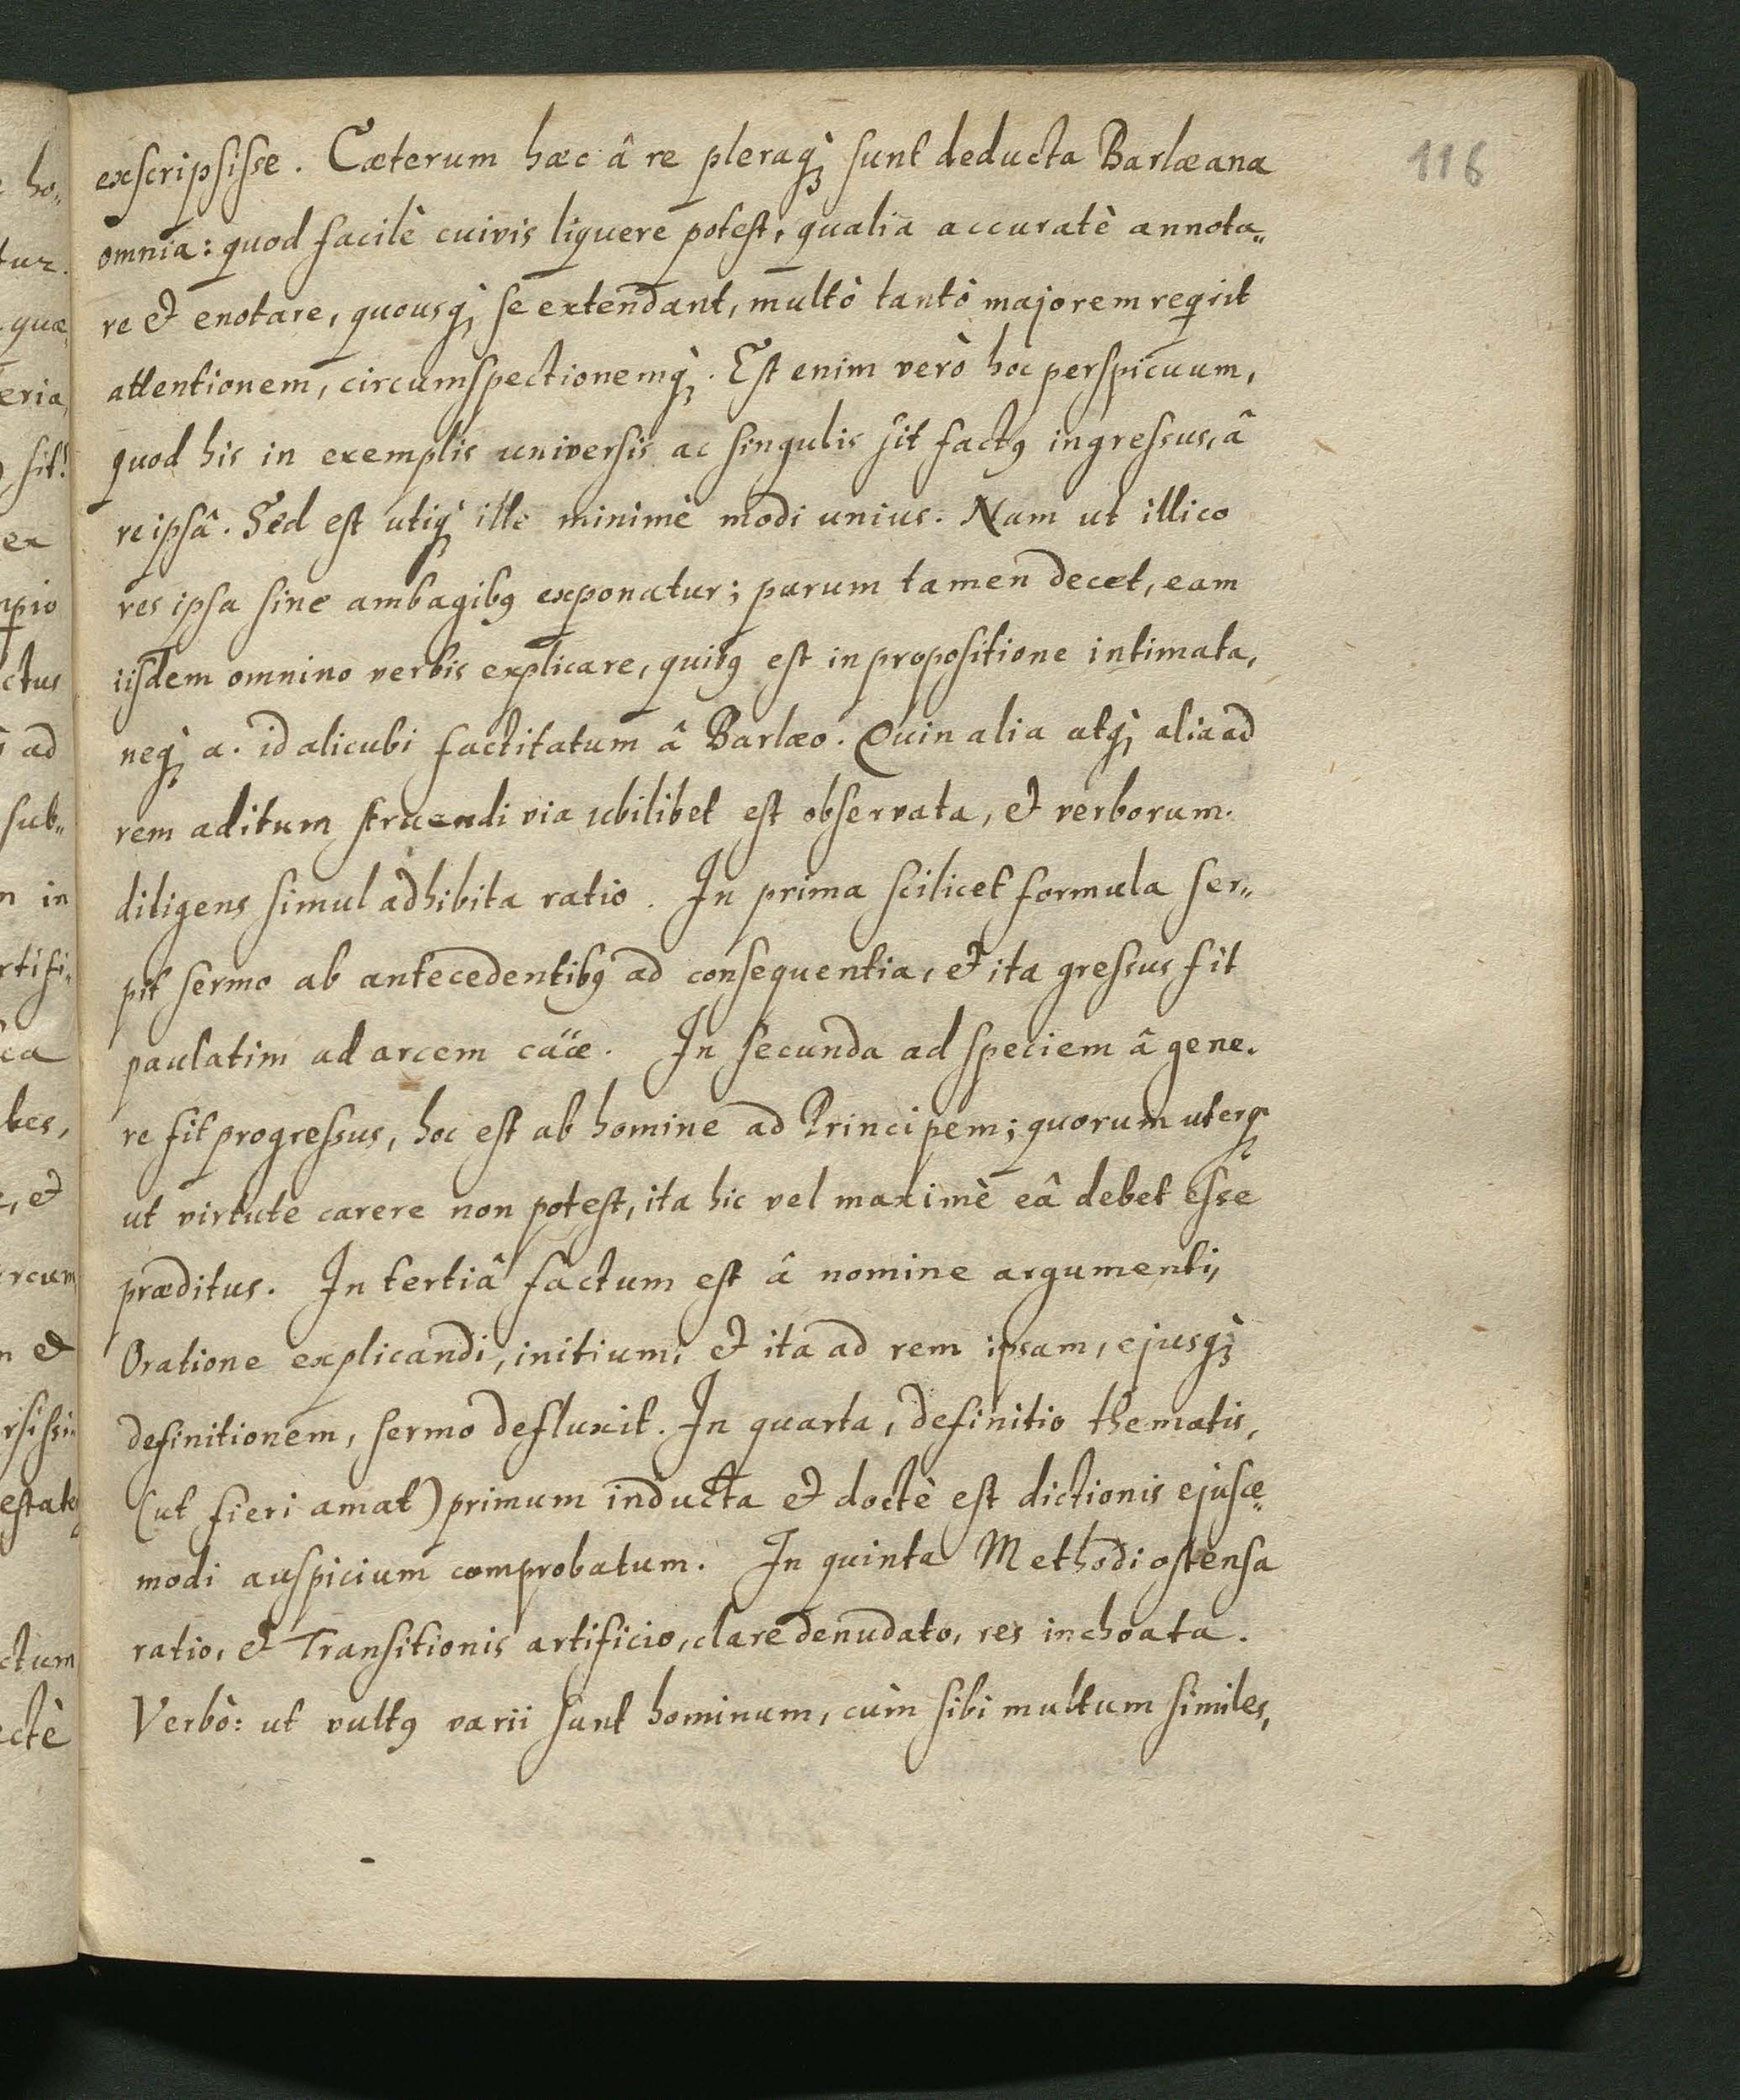 116
exscripsisse. Cæterum hæc â re pleraq; sunt deducta Barlæana
omnia: quod facilè cuivis liquere potest, qualia accuratè annota„
re et enotare, quousq; se extendant, multò tantò majorem reqrit
attentionem, circumspectionemq;. Est enim verò hoc perspicuum,
quod his in exemplis universis ac singulis sit factꝯ ingressus, â
re ipsâ. Sed est utiq; ille minimè modi unius. Nam ut illico
res ipsa sine ambagibꝯ exponatur; parum tamen decet, eam
iisdem omnino verbis explicare, quibꝯ est in propositione intimata,
neq; a. id alicubi factitatum â Barlæo. Quin alia atq; alia ad
rem aditum struendi via ubilibet est observata, et verborum
diligens simul adhibita ratio. In prima scilicet formula ser„
pit sermo ab antecedentibꝯ ad consequentia, et ita gressus fit
paulatim ad arcem cäæ. In secunda ad speciem â gene.
re fit progressus, hoc est ab homine ad Principem; quorum uterq;
ut virtute carere non potest, ita hic vel maximè eâ debet esse
præditus. In tertiâ factum est â nomine argumenti,
Oratione explicandi, initium, et ita ad rem ipsam, ejusq;
definitionem, sermo defluxit. In quarta, definitio thematis,
(ut fieri amat) primum inducta et doctè est dictionis ejusce„
modi auspicium comprobatum. In quinta Methodi ostensa
ratio, et Transitionis artificio, clare denudato, res inchoata.
Verbò: ut vultꝯ varii sunt hominum, cùm sibi multum similes,
ho„
tur.
quæ
eria,
sit!
ex
npio
ctus
ad
sub„
n in
rtifi„
ea
bes,
, et
rcum
n et
rsissi„
ctum
ectè